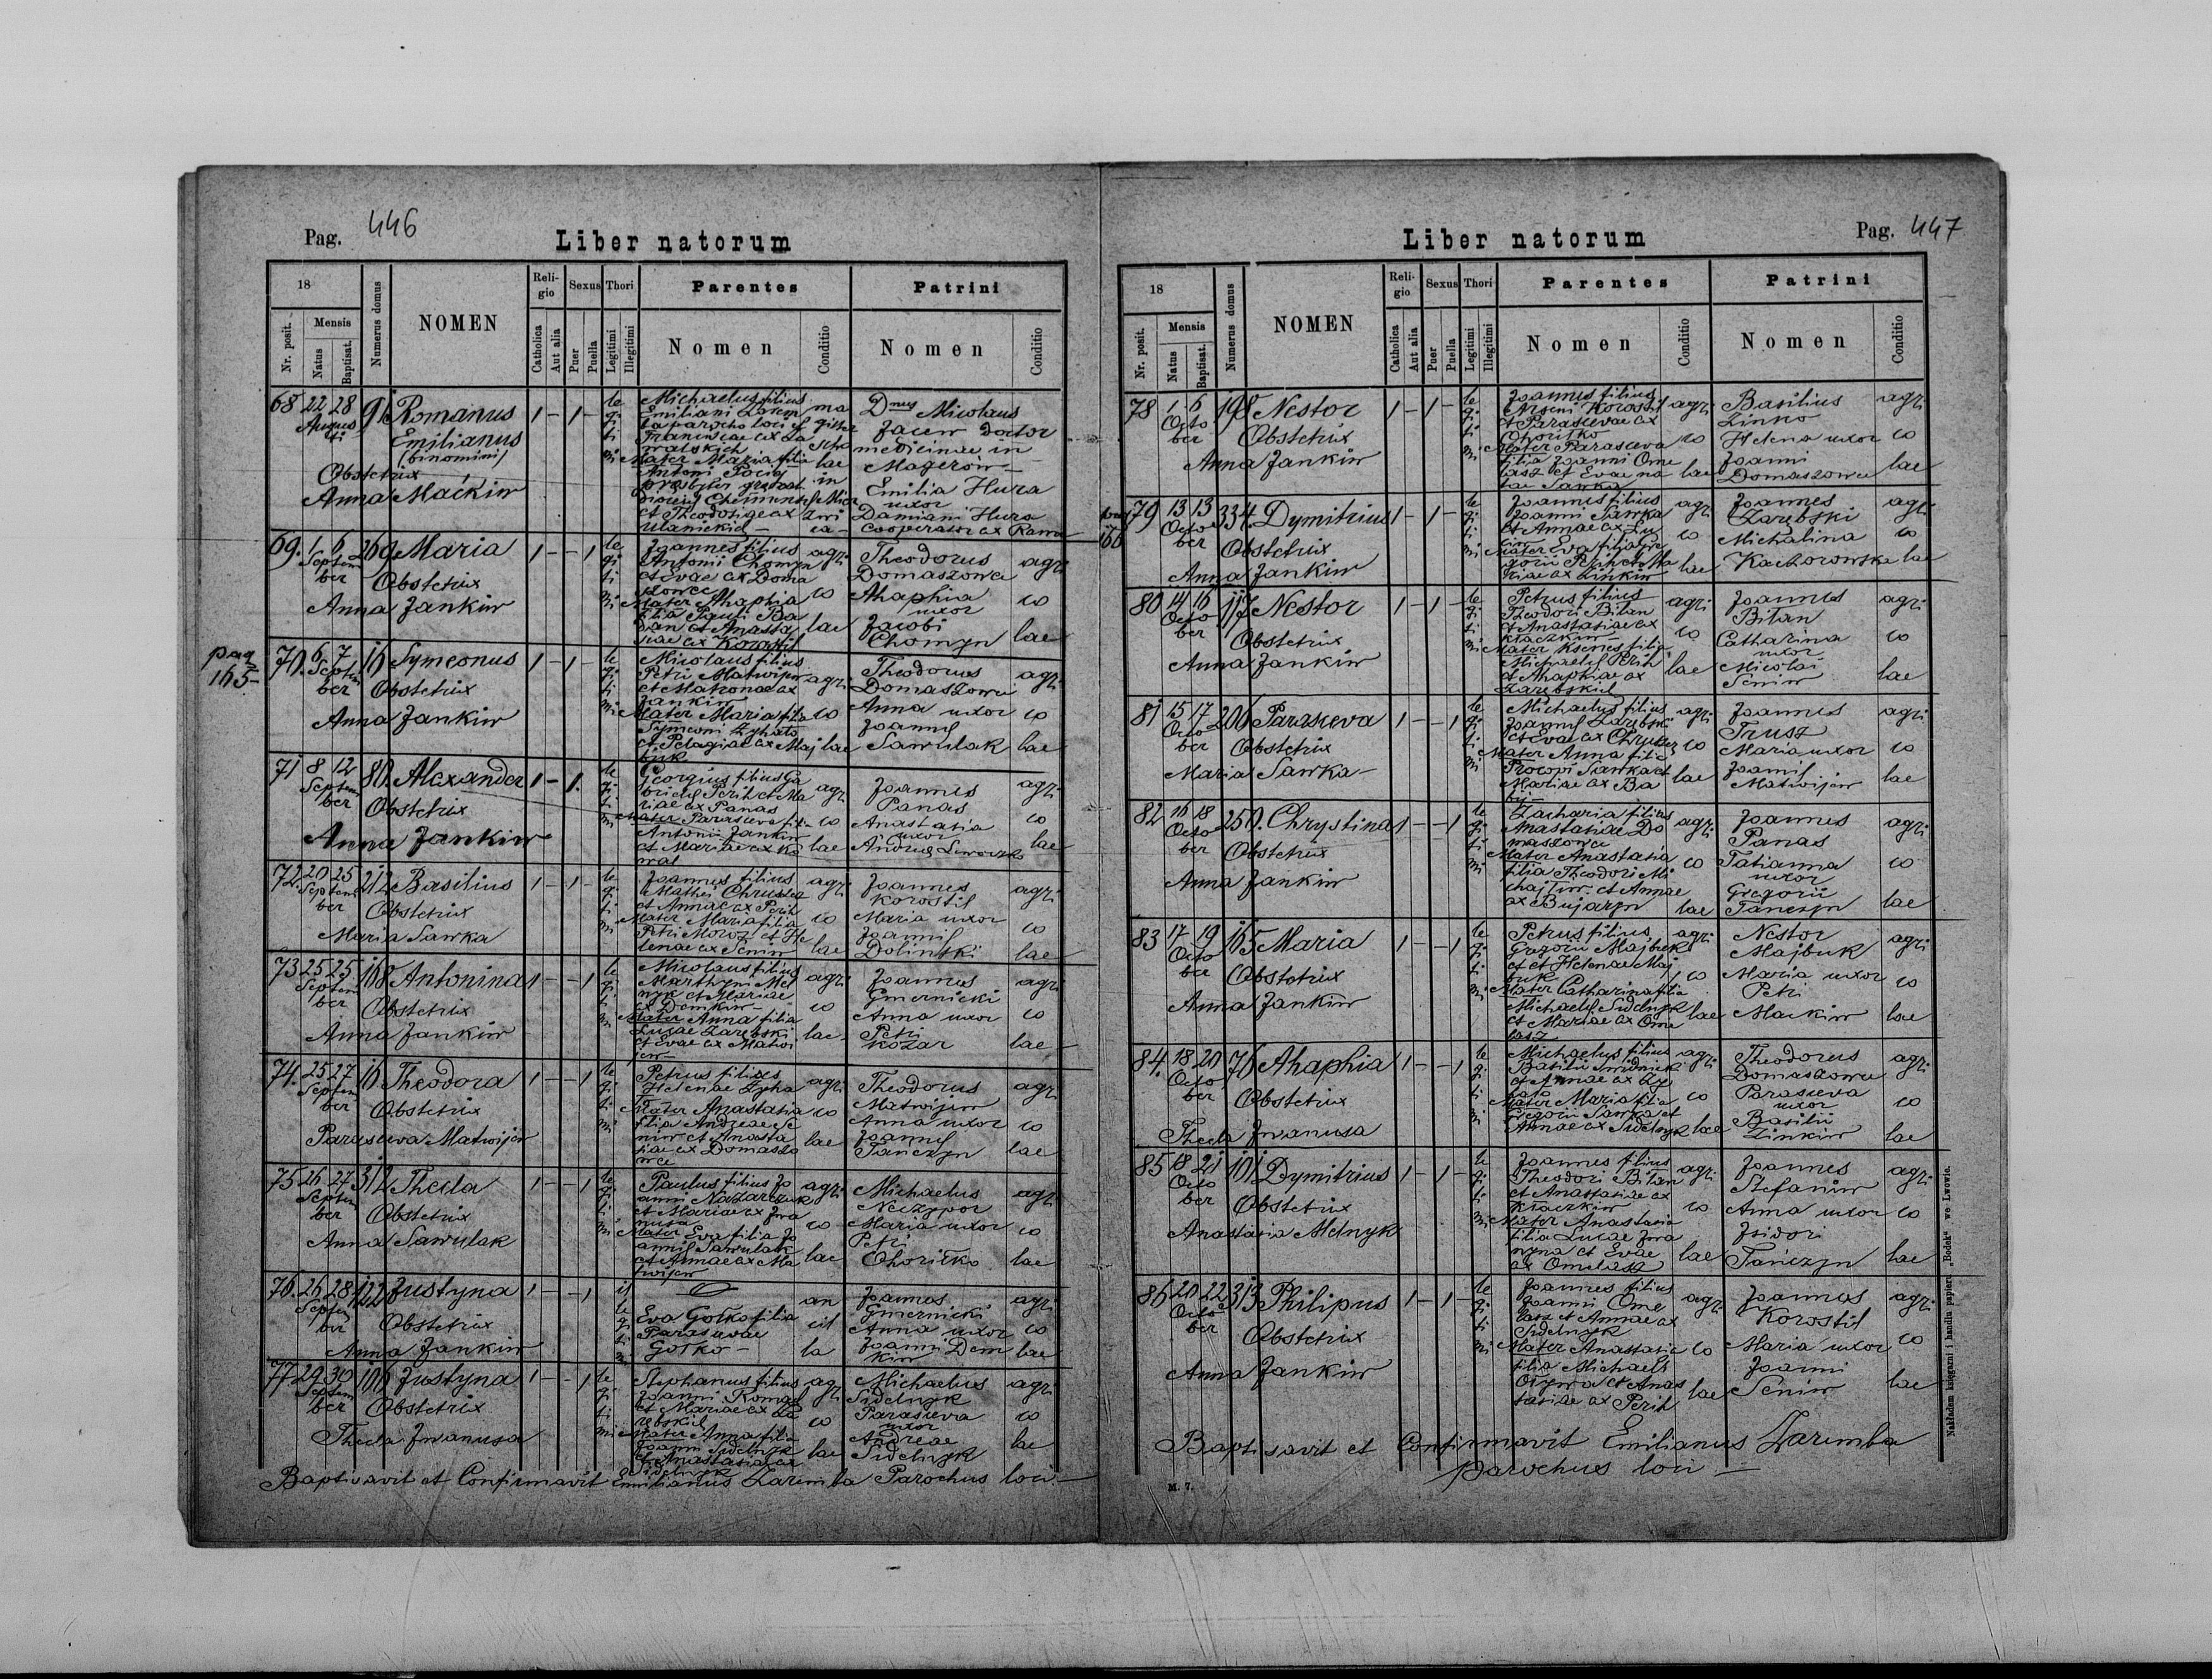 Pag. 446
Liber natorum
18
Nr. posit.
Mensis
Natus
Baptisat.
Numerus domus
NOMEN
Religio
Catholica
Aut alia
Sexus
Puer
Puella
Thori
Legitimi
Illegitimi
Parentes
Nomen
Conditio
Patrini
Nomen
Conditio
68 22 28 Augusti 91 Romanus
Emilianus
(binomini)
Obstetrix
Anna Maćkiw
Michaelus filius
Emiliani Zarem
ba parocho loci et
Mater Maria filia
Antoni
et Theodosiae ex
Dnus Nicolaus
Jacew Doctor
medicinae in
Magerów
Emilia Hura
uxor
Damiani Hura
Cooperator ex Rawa
69. 1 6 September 269 Maria
Obstetrix
Anna Jankiw
Joannes filius
Antonii Chomyn
et Evae ex Doma
szowce
Mater Ahaphia
filia Pauli Ba
ran et Anasta
siae ex Korostil
agricolae
Theodorus
Domaszowce
Ahaphia
uxor
Jacobi
Chomyn
agricolae
pag
165
70. 6 7 September 16 Symeonus
Obstetrix
Anna Jankiw
Nicolaus filius
Petri Matwijew
et Matronae ex
Jankiw
Mater Maria filia
Symeoni Zyhalo
et Pelagiae ex Maj
buk
agricolae
Theodorus
Domaszowce
Anna uxor
Joannis
Sawulak
agricolae
71 8 12 September 80. Alexander
Obstetrix
Anna Jankiw
Georgius filius Ga
brielis Perih et Ma
riae ex Panas
Mater Parasceva filia
Antonii Jankiw
et Mariae ex Ko
wal
agricolae
Joannes
Panas
Anastasia
uxor
Andreae
agricolae
72. 20 25 September 212 Basilius
Obstetrix
Maria Sawka
Joannes filius
Mathei Chruszcz
et Annae ex Perih
Mater Maria filia
Petri Moroz et He
lenae ex Seniw
agricolae
Joannes
Korostil
Maria uxor
Joannis
Dolinski
agricolae
73 25 25 September 168 Antonina
Obstetrix
Anna Jankiw
Nicolaus filius
Marthyni Mel
nyk et Mariae
ex Demkiw
Mater Anna filia
Lucae Zarębski
et Evae ex Matwi
jew
agricolae
Joannes
Gmernicki
Anna uxor
Petri
Kozar
agricolae
74. 25 27 September 16 Theodora
Obstetrix
Parasceva Matwijew
Petrus filius
Helenae Zyha
Mater Anastasia
filia Andreae Se
niw et Anasta
siae ex Domaszo
wce
agricolae
Theodorus
Matwijew
Anna uxor
Joannis
Tanczyn
agricolae
75 26 27 September 312 Thecla
Obstetrix
Anna Sawulak
Paulus filius Jo
anni Nazarczuk
et Mariae ex Iwa
nusa
Mater Eva filia Jo
annis Sawulak
et Annae ex Ma
twijew
agricolae
Michaelus
Neczypor
Maria uxor
Petri
Ohoriłko
agricolae
76. 26 28 September 122 Justyna
Obstetrix
Anna Jankiw
Eva Gotko filia
Parascevae
Gotko
ancilla
Joannes
Gmernicki
Anna uxor
Joanni Dem
kiw
agricolae
77 29 30 September 106 Justyna
Obstetrix
Thecla Iwanusa
Stephanus filius
Joanni Roman
et Mariae ex Za
rębskich
Mater Anna filia
Joanni Sidelnyk
et Anastasiae ex
Sidelnyk
agricolae
Michaelus
Sidelnyk
Parasceva
uxor
Andreae
Sidelnyk
agricolae
Baptisavit et Confirmavit Emilianus Zaremba Parochus loci
Liber natorum
Pag. 447
18
Nr. posit.
Mensis
Natus
Baptisat.
Numerus domus
NOMEN
Religio
Catholica
Aut alia
Sexus
Puer
Puella
Thori
Legitimi
Illegitimi
Parentes
Nomen
Conditio
Patrini
Nomen
Conditio
78 1 6 October 198 Nestor
Obstetrix
Anna Jankiw
Joannes filius
Arseni Korostil
et Parascevae ex
Ohoriłko
Mater Parasceva
filia Joanni Ome
lasz et Evae na
tae Sawka
agricolae
Basilius
Zinko
Helena uxor
Joanni
Domaszowce
agricolae
166
79 13 13 October 334. Dymitrius
Obstetrix
Anna Jankiw
Joannes filius
Joanni Sawka
et Annae ex
Mater Eva filia Gre
gorii Perih et Ma
riae ex Zinkiw
agricolae
Joannes
Zarębski
Michalina
Kaczorowska
agricolae
80 14 16 October 117 Nestor
Obstetrix
Anna Jankiw
Petrus filius
Theodori Bilan
et Anastasiae ex
Kłaczkiw
Mater Ksenes filia
Michaelis Perih
et Ahaphiae ex
Zarębskich
agricolae
Joannes
Bilan
Catharina
uxor
Nicolai
Seniw
agricolae
81 15 17 October 206 Parasceva
Obstetrix
Maria Sawka
Michaelus filius
Joannis Zarębski
et Evae ex Chruszcz
Mater Anna filia
Procopi Sawka et
Mariae ex Ba
bij
agricolae
Joannes
Trusz
Maria uxor
Joannis
Matwijew
agricolae
82 16 18 October 250. Chrystina
Obstetrix
Anna Jankiw
Zacharia filius
Anastasiae Do
maszowce
Mater Anastasia
filia Theodori Mi
chajliw et Annae
ex Bujaryn
agricolae
Joannes
Panas
Tatianna
uxor
Gregorii
Tanczyn
agricolae
83 17 19 October 165 Maria
Obstetrix
Anna Jankiw
Petrus filius
Gregorii Majbuk
et et Helenae Maj
buk
Mater Catharina filia
Michaelis Sidelnyk
et Mariae ex Ome
lasz
agricolae
Nestor
Majbuk
Maria uxor
Petri
Maćkiw
agricolae
84. 18 20 October 76 Ahaphia
Obstetrix
Thecla Iwanusa
Michaelus filius
Basilii Smidnicki
et Annae ex Zy
halo
Mater Maria filia
Gregorii Sawka et
Annae ex Sidelnyk
agricolae
Theodorus
Domaszowce
Parasceva
uxor
Basilii
Zinkiw
agricolae
85 18 21 October 101 Dymitrius
Obstetrix
Anastasia Melnyk
Joannes filius
Theodori Bilan
et Anastasiae ex
Kłaczkiw
Mater Anastasia
filia Lucae Iwa
nyna et Evae
ex Omelasz
agricolae
Joannes
Stefaniw
Anna uxor
Isidori
Tanczyn
agricolae
86 20 22 October 313 Philipus
Obstetrix
Anna Jankiw
Joannes filius
Joanni Ome
lasz et Annae ex
Sidelnyk
Mater Anastasia
filia Michaelis
et Anas
tasiae ex Perih
agricolae
Joannes
Korostil
Maria uxor
Joanni
Seniw
agricolae
Baptisavit et Confirmavit Emilianus Zaremba
parochus loci
M. 7.
Nakładem księgarni i handlu papieru „Bodek“ we Lwowie.